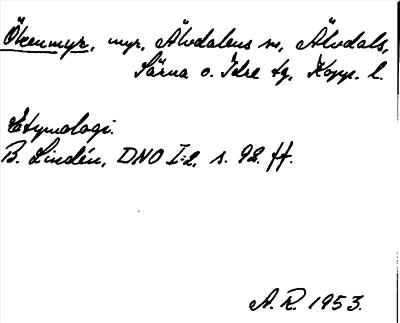 Ökenmyr, myr, Älvdalens sn, Älvdals,
Särna o. Idre tg, Kopp. l.
Etymologi.
B. Lindén, DNO I:2, s. 92. ff.
A. R. 1953.